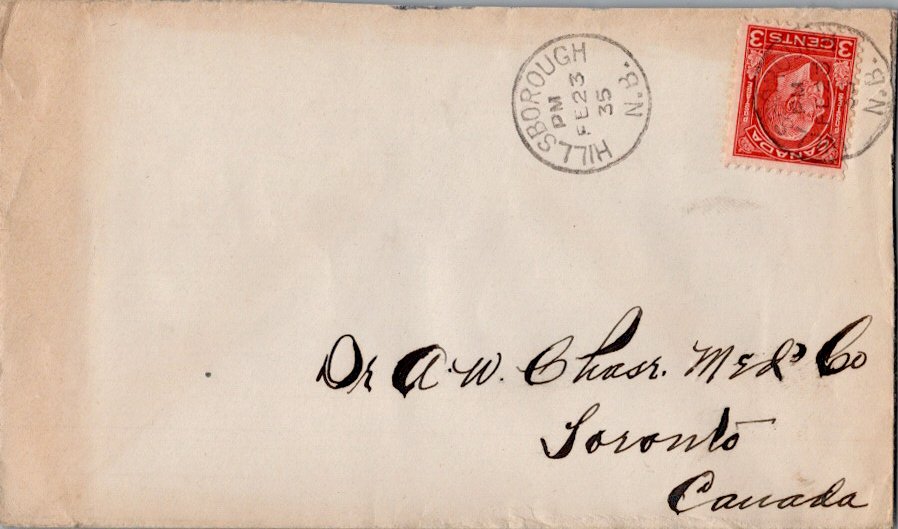 HILLSBOROUGH N.B.
PM
FE 23
35
3 CENTS 3
CANADA
PM
N.B.
Dr A. W. Chase. Med's Co
Toronto
Canada